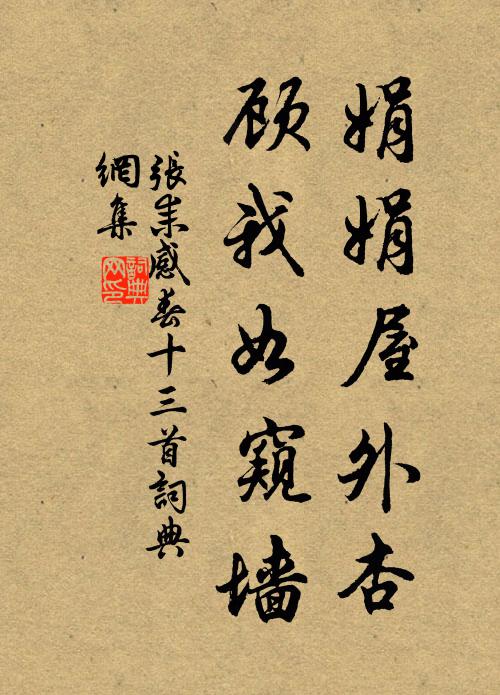 娟娟屋外杏
顾我如窥墙
張耒感春十三首詞典
網集
詞典
网印